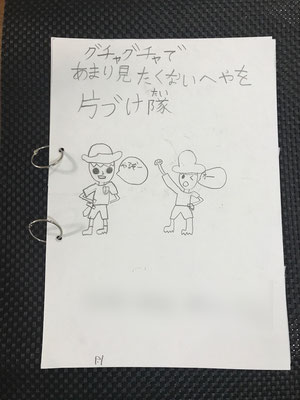 グチャグチャで
あまり見たくないへやを
片づけ隊
たい
やるぞー